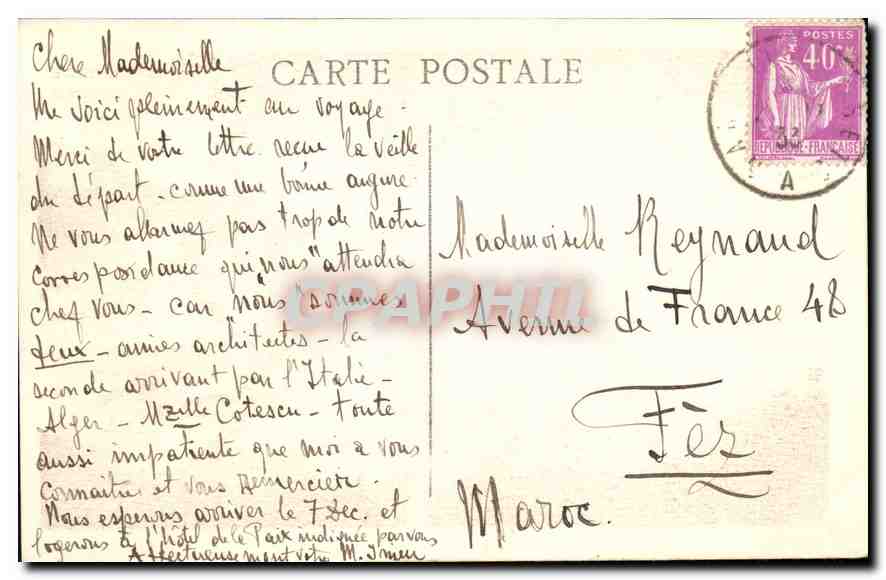 CARTE POSTALE
Chere Mademoiselle
Me voici pleinement en voyage.
Merci de votre lettre recue la veille
du départ - comme une bonne augure.
Ne vous allarmez pas trop de notre
correspondance qui nous attendra
chez vous - car "nous" sommes
deux - amies architectes - la
seconde arrivant par l'Italie -
Alger - Mzelle Cotescu - toute
aussi impatiente que moi a vous
connaitre et vous remercier.
Nous esperons arriver le 7 Dec. et
logerons à l'hôtel de la Paix indiquée par vous
Affectueusement votre M.
POSTES
40c
REPUBLIQUE-FRANÇAISE
33
A
Mademoiselle Reynaud
Avenue de France 48
Fèz
Maroc.
CPAPHIL